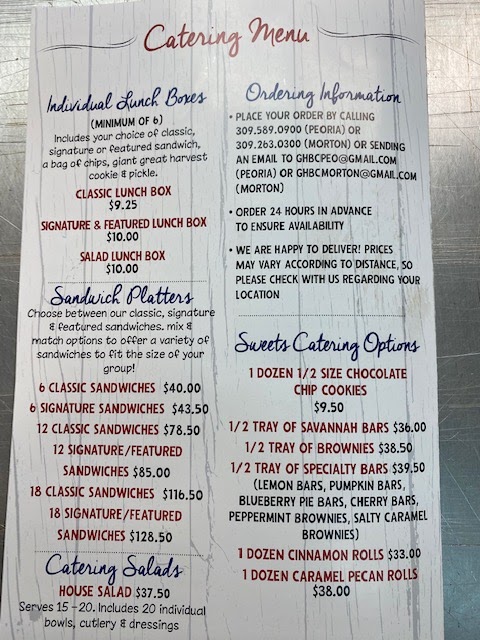 Catering Menu
Individual Lunch Boxes
(MINIMUM OF 6)
Includes your choice of classic,
signature or featured sandwich,
a bag of chips, giant great harvest
cookie & pickle.
CLASSIC LUNCH BOX
$9.25
SIGNATURE & FEATURED LUNCH BOX
$10.00
SALAD LUNCH BOX
$10.00
Sandwich Platters
Choose between our classic, signature
& featured sandwiches. mix &
match options to offer a variety of
sandwiches to fit the size of your
group!
6 CLASSIC SANDWICHES $40.00
6 SIGNATURE SANDWICHES $43.50
12 CLASSIC SANDWICHES $78.50
12 SIGNATURE/FEATURED
SANDWICHES $85.00
18 CLASSIC SANDWICHES $116.50
18 SIGNATURE/FEATURED
SANDWICHES $128.50
Catering Salads
HOUSE SALAD $37.50
Serves 15 -20. Includes 20 individual
bowls, cutlery & dressings
Ordering Information
• PLACE YOUR ORDER BY CALLING
309.589.0900 (PEORIA) OR
309.263.0300 (MORTON) OR SENDING
AN EMAIL TO GHBCPEO@GMAIL.COM
(PEORIA) OR GHBCMORTON@GMAIL.COM
(MORTON)
• ORDER 24 HOURS IN ADVANCE
TO ENSURE AVAILABILITY
• WE ARE HAPPY TO DELIVER! PRICES
MAY VARY ACCORDING TO DISTANCE, SO
PLEASE CHECK WITH US REGARDING YOUR
LOCATION
Sweets Catering Options
1 DOZEN 1/2 SIZE CHOCOLATE
CHIP COOKIES
$9.50
1/2 TRAY OF SAVANNAH BARS $36.00
1/2 TRAY OF BROWNIES $38.50
1/2 TRAY OF SPECIALTY BARS $39.50
(LEMON BARS, PUMPKIN BARS,
BLUEBERRY PIE BARS, CHERRY BARS,
PEPPERMINT BROWNIES, SALTY CARAMEL
BROWNIES)
1 DOZEN CINNAMON ROLLS $33.00
1 DOZEN CARAMEL PECAN ROLLS
$38.00